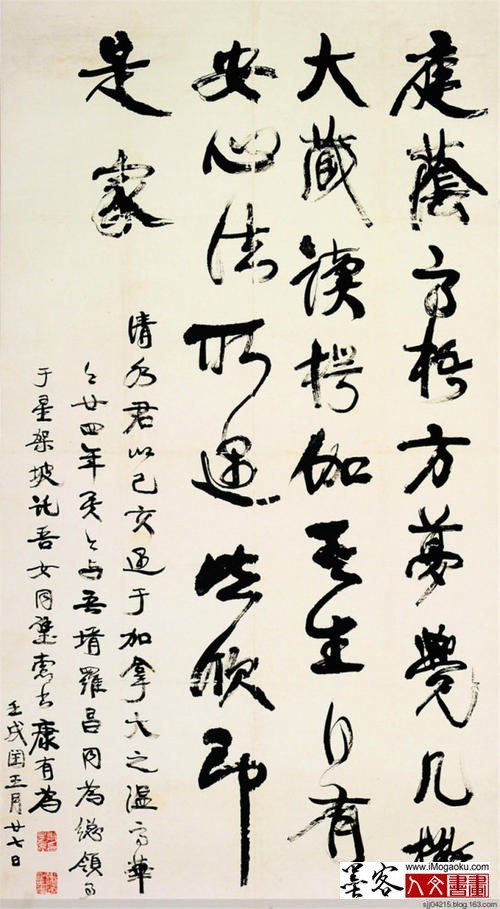 庭蔭高梧方夢覺几攤
大藏讀楞伽吾生自有
安心法所遇皆欣即
是家
清水君以己亥遇于加拿大之溫高華
今廿四年矣今与吾壻羅昌同為總領事
于星架坡託吾女同璧索书康有為
壬戌閏五月廿七日
www.iMogaoku.com
墨客 人文書畫
sjj04215.blog.163.com